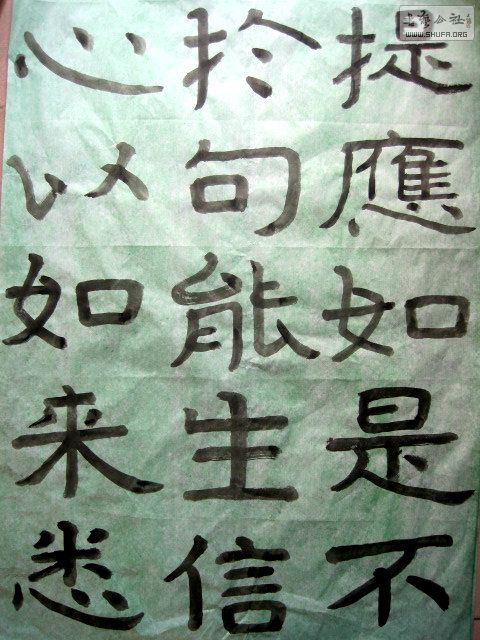 提應如是不
扵句能生信
心以如来悉
WWW.SHUFA.ORG